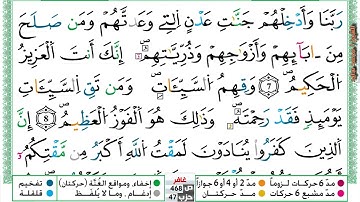 رَبَّنَا وَأَدْخِلْهُمْ جَنَّٰتِ عَدْنٍ ٱلَّتِى وَعَدتَّهُمْ وَمَن صَلَحَ
مِنْ ءَابَآئِهِمْ وَأَزْوَٰجِهِمْ وَذُرِّيَّٰتِهِمْ ۚ إِنَّكَ أَنتَ ٱلْعَزِيزُ
ٱلْحَكِيمُ 7 وَقِهِمُ ٱلسَّيِّـَٔاتِ ۚ وَمَن تَقِ ٱلسَّيِّـَٔاتِ
يَوْمَئِذٍ فَقَدْ رَحِمْتَهُۥ ۚ وَذَٰلِكَ هُوَ ٱلْفَوْزُ ٱلْعَظِيمُ 8 إِنَّ
ٱلَّذِينَ كَفَرُوا۟ يُنَادَوْنَ لَمَقْتُ ٱللَّهِ أَكْبَرُ مِن مَّقْتِكُمْ
مدّ 6 حركات لزوماً مدّ 2 أو 4 أو 6 جوازاً غافر ص 468 إخفاء، ومواقع الغُنَّة (حركتان) تفخيم
مدّ مشبع 6 حركات مدّ حركتان حزب 47 إدغام، وما لا يُلفَظ قلقلة